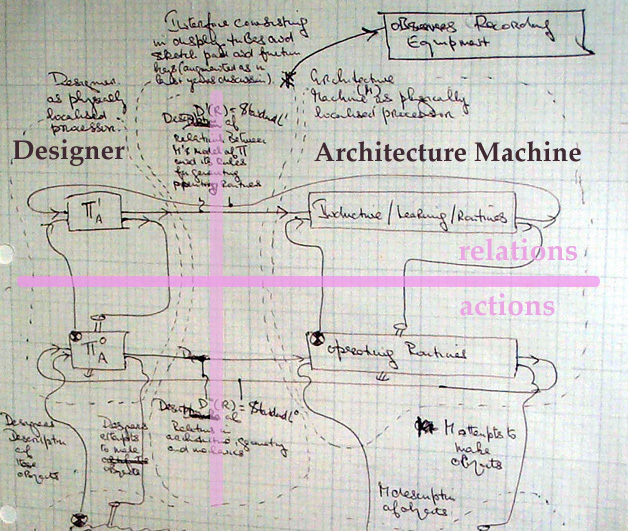 Interface consisting
in display tubes and
sketch pad and function
keys (augmented as in
last years discussion).
Observers Recording
Equipment
Designer
as physically
localised
processor.
Architecture
Machine (M) as physically
localised processor
D'(R) = Standard L'
of
relations between
M's model of Π
and its rules
for generating
operating Routines
Designer
Architecture Machine
Π'A
Inductive/Learning/Routines
relations
actions
Π°A
Operating Routines
D°(R) = Standard L°
of
Relations in
architectural geometry
and mechanics
Designers
Description
of
objects
Designers
attempts
to make
objects
M attempts to
make
objects
M description
of objects